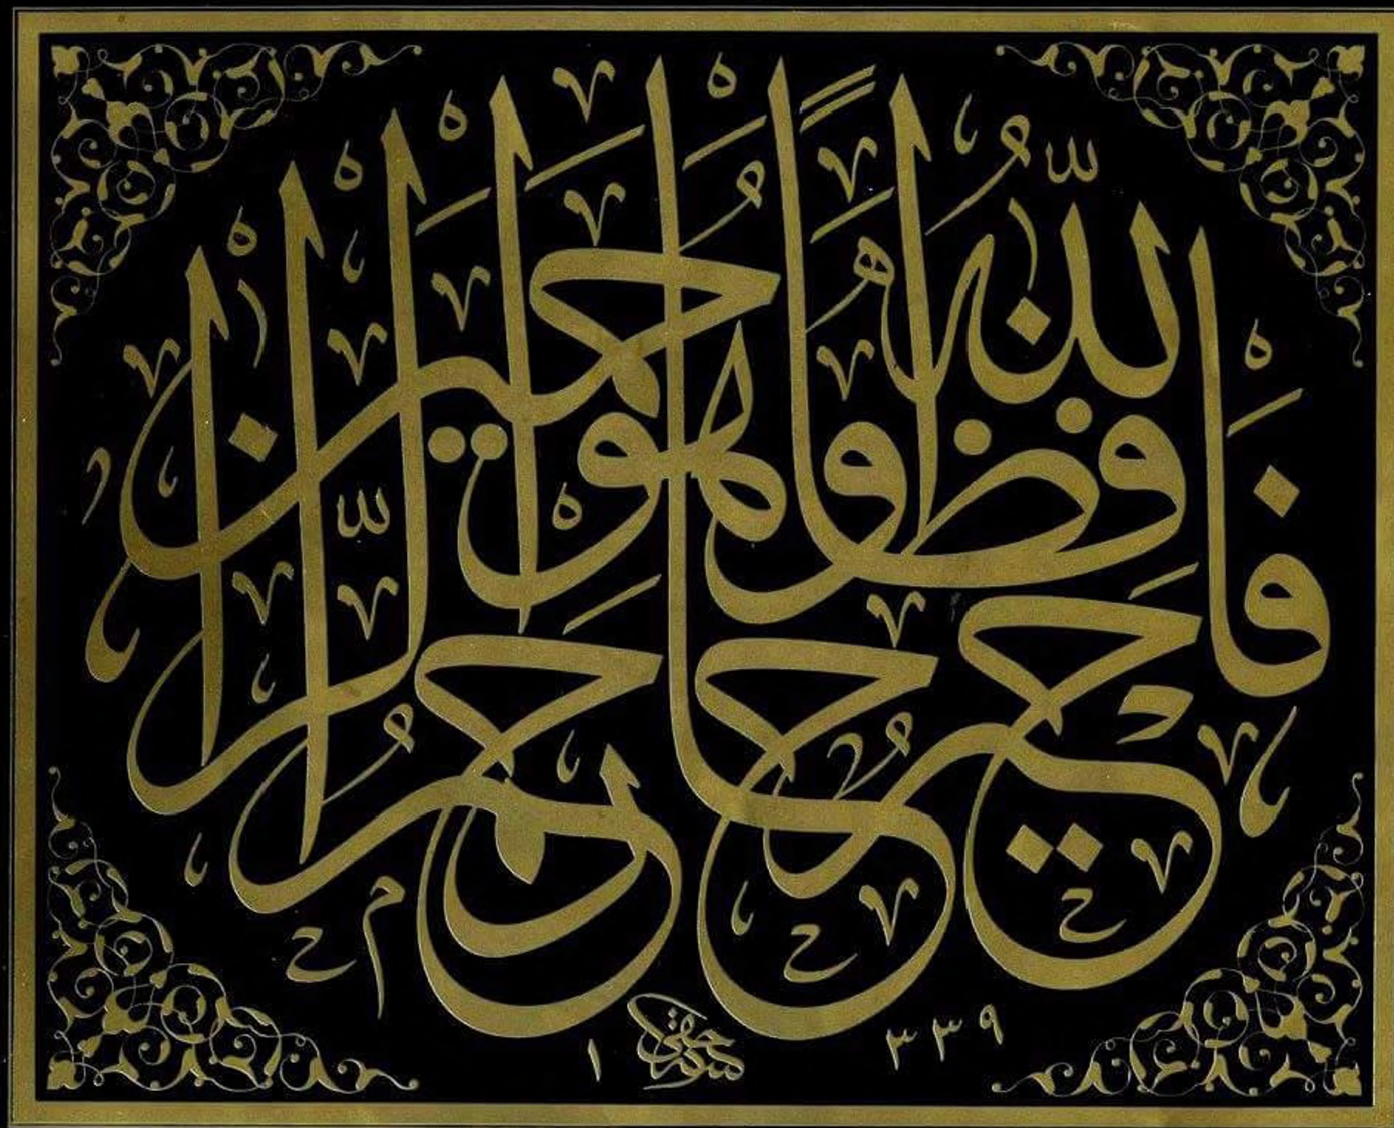 فَاللّٰهُ خَيْرٌ حَافِظًا وَهُوَ أَرْحَمُ الرَّاحِمِينَ
حقي
١٣٣٩